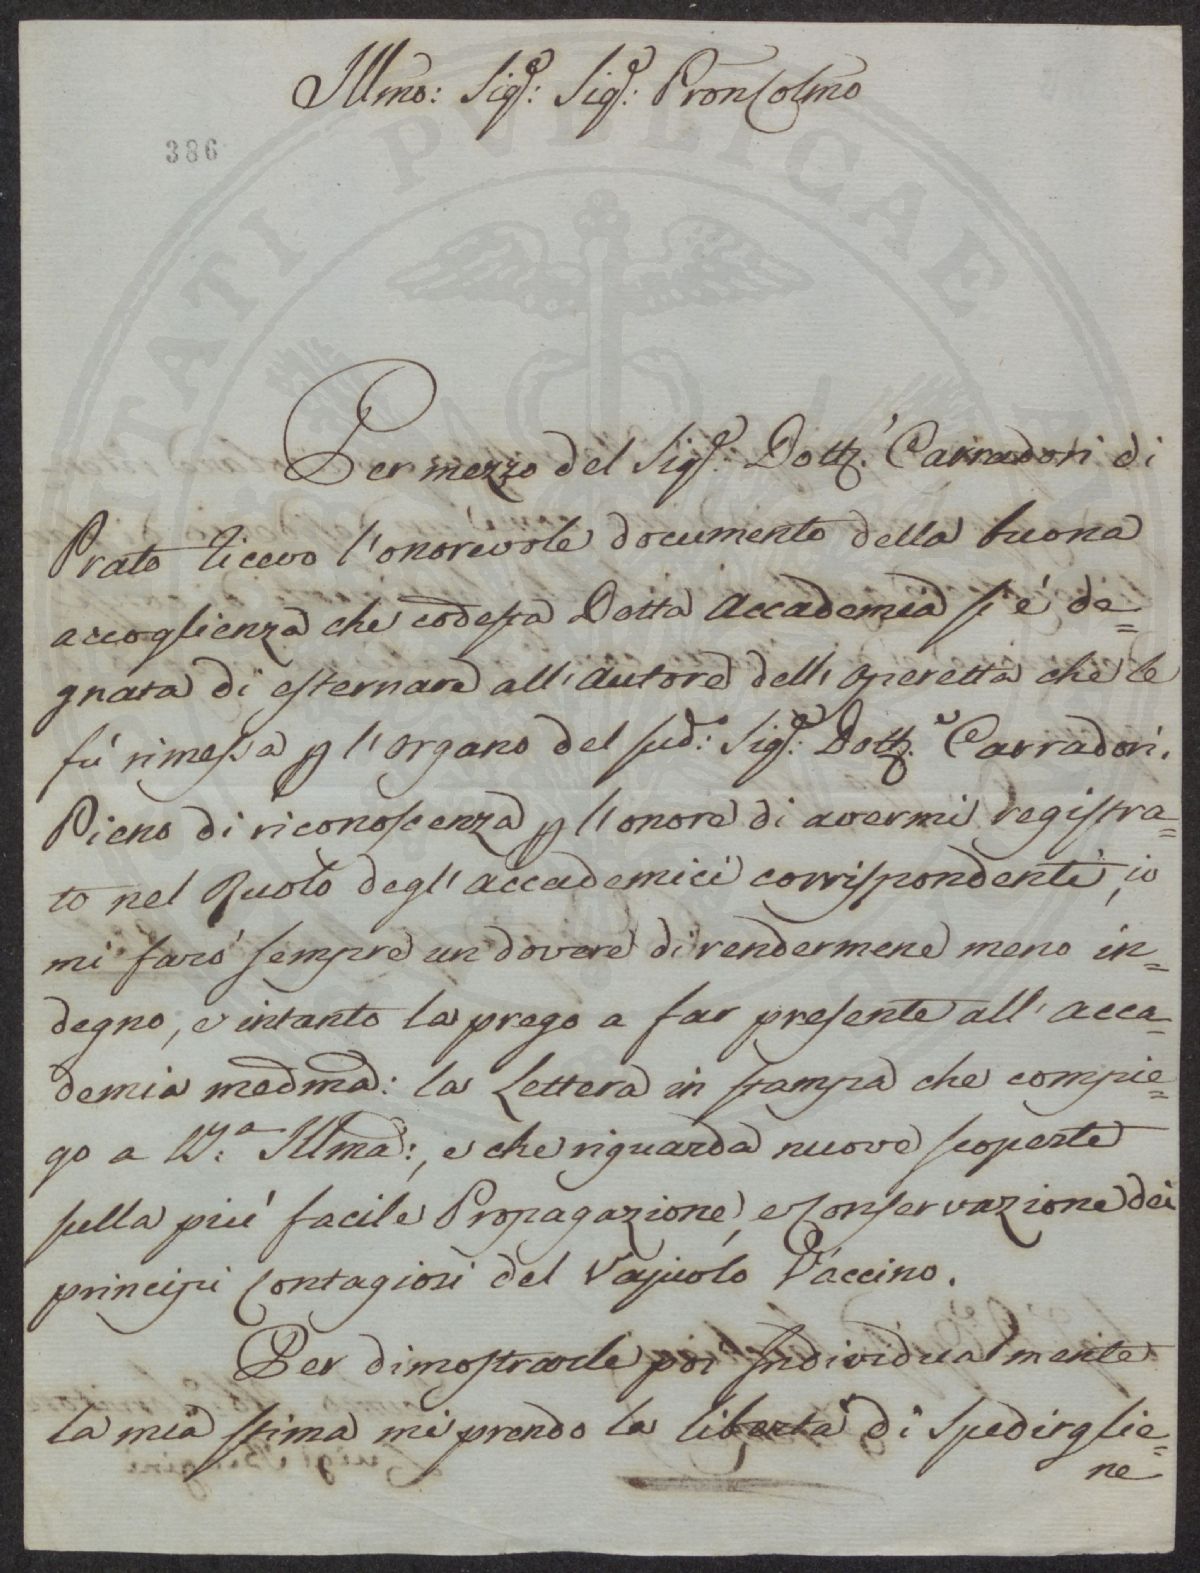 Illmo: Sigr: Sigr: Pron Colmo
386
Per mezzo del Sigr: Dottr. Carradori di
Prato ricevo l'onorevole documento della buona
accoglienza che codesta Dotta Accademia si é de=
gnata di esternare all'Autore dell'Operetta che le
fú rimessa p l'Organo del sud.o Sigr: Dottr. Carradori.
Pieno di riconoscenza p l'onore di avermi registra=
to nel Ruolo degl'accademici corrispondenti, io
mi faró sempre un dovere di rendermene meno in=
degno, e intanto la prego a far presente all'acca=
demia medma: la Lettera in stampa che compie=
go a V.a Illma:, e che riguarda nuove scoperte
sulla piú facile Propagazione, e conservazione dei
principi Contagiosi del Vajuolo Vaccino.
Per dimostrarle poi individualmente
la mia stima mi prendo la libertá di spedirglie=
ne